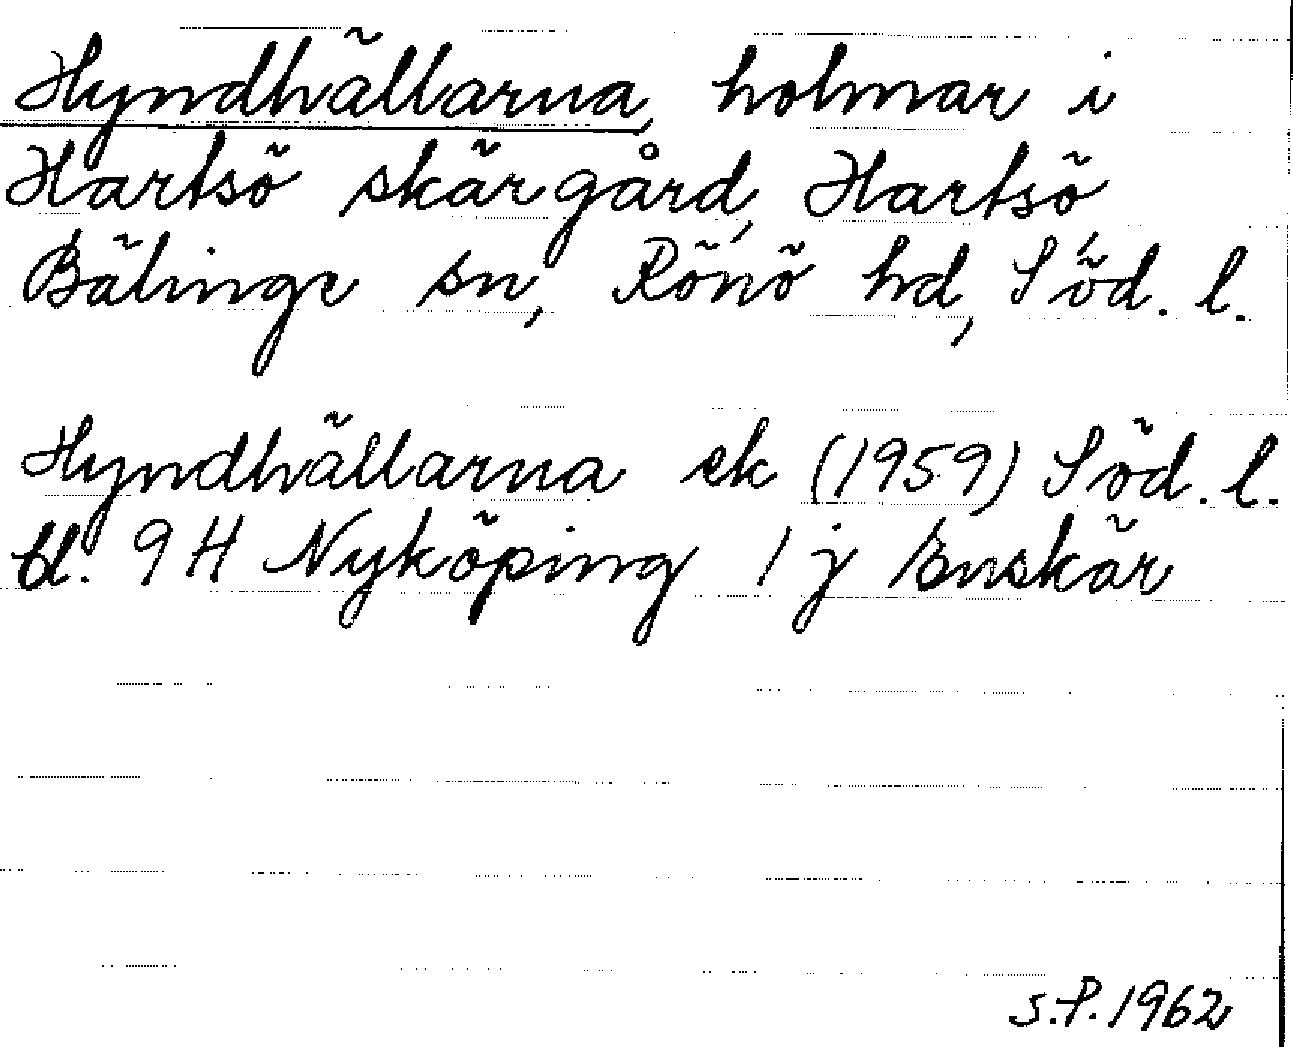 Hyndhällarna, holmar i
Hartsö skärgård, Hartsö,
Bälinge sn, Rönö hd, Söd. l.
Hyndhällarna ek (1959) Söd. l.
bl. 9 H Nyköping 1 j Enskär
S.P. 1962